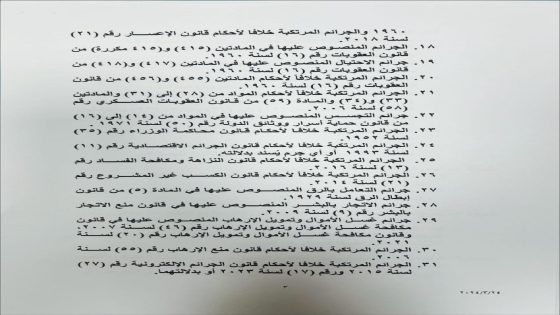 ١٩٦٠ والجرائم المرتكبة خلافاً لأحكام قانون الإعسار رقم (٢١)
لسنة ٢٠١٨.
١٨. الجرائم المنصوص عليها في المادتين (٤١٥) و(٤١٥) مكررة من
قانون العقوبات رقم (١٦) لسنة ١٩٦٠.
١٩. جرائم الاحتيال المنصوص عليها في المادتين (٤١٧) و(٤١٨) من
قانون العقوبات رقم (١٦) لسنة ١٩٦٠.
٢٠. الجرائم المرتكبة خلافاً لأحكام المادتين (٤٥٥) و(٤٥٦) من قانون
العقوبات رقم (١٦) لسنة ١٩٦٠.
٢١. الجرائم المرتكبة خلافاً لأحكام المواد من (٢٨) إلى (٣١) والمادتين
(٣٣) و(٣٤) والمادة (٥٩) من قانون العقوبات العسكري رقم
(٥٨) لسنة ٢٠٠٦.
٢٢. جرائم التجسس المنصوص عليها في المواد من (١٤) إلى (١٦)
من قانون حماية أسرار ووثائق الدولة رقم (٥٠) لسنة ١٩٧١.
٢٣. الجرائم المرتكبة خلافاً لأحكام قانون محاكمة الوزراء رقم (٣٥)
لسنة ١٩٥٢.
٢٤. الجرائم المرتكبة خلافاً لأحكام قانون الجرائم الاقتصادية رقم (١١)
لسنة ١٩٩٣ أو أي جرم يُسند بدلالته.
٢٥. الجرائم المرتكبة خلافاً لأحكام قانون النزاهة ومكافحة الفساد رقم
(١٣) لسنة ٢٠١٦.
٢٦. الجرائم المرتكبة خلافاً لأحكام قانون الكسب غير المشروع رقم
(٢١) لسنة ٢٠١٤.
٢٧. جرائم التعامل بالرق المنصوص عليها في المادة (٥) من قانون
إبطال الرق لسنة ١٩٢٩.
٢٨. جرائم الاتجار بالبشر المنصوص عليها في قانون منع الاتجار
بالبشر رقم (٩) لسنة ٢٠٠٩.
٢٩. جرائم غسل الأموال وتمويل الإرهاب المنصوص عليها في قانون
مكافحة غسل الأموال وتمويل الإرهاب رقم (٤٦) لسنة ٢٠٠٧،
وقانون مكافحة غسل الأموال وتمويل الإرهاب رقم (٢٠) لسنة
٢٠٢١.
٣٠. الجرائم المرتكبة خلافاً لأحكام قانون منع الإرهاب رقم (٥٥) لسنة
٢٠٠٦.
٣١. الجرائم المرتكبة خلافاً لأحكام قانون الجرائم الإلكترونية رقم (٢٧)
لسنة ٢٠١٥ ورقم (١٧) لسنة ٢٠٢٣ أو بدلالتهما.
٢٠٢٤/٣/٢٤